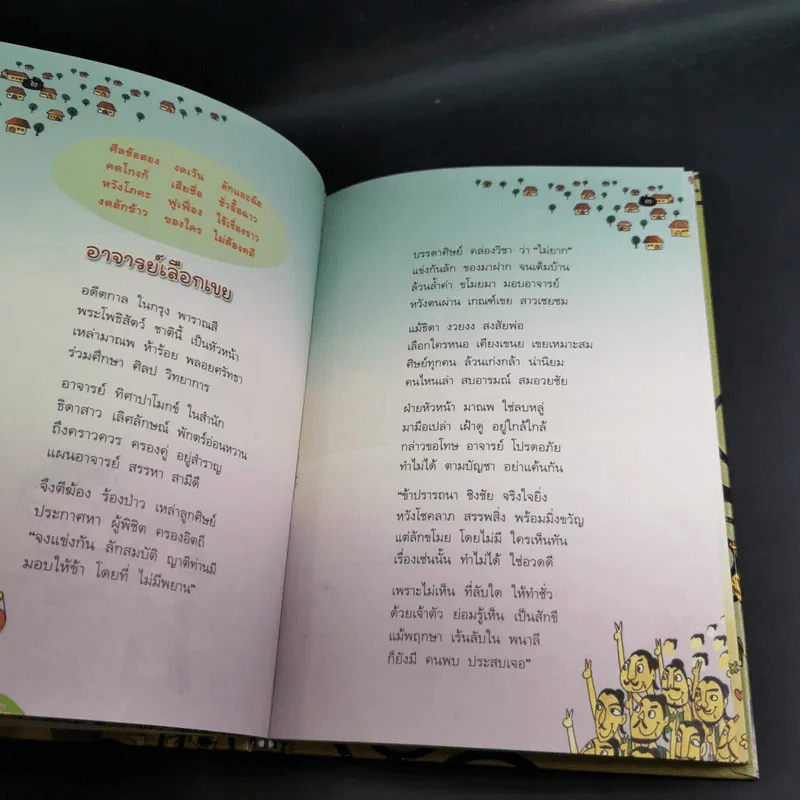 ๒
ศีลข้อสอง งดเว้น ลักและฉ้อ
คดโกงก็ เสียชื่อ ชั่วอื้อฉาว
หวังโภคะ ฟูเฟื่อง ไร้เรื่องราว
งดลักข้าว ของใคร ไม่ต้องคดี
อาจารย์เลือกเขย
อดีตกาล ในกรุง พาราณสี
พระโพธิสัตว์ ชาตินี้ เป็นหัวหน้า
เหล่ามาณพ ห้าร้อย พลอยศรัทธา
ร่วมศึกษา ศิลป วิทยาการ
อาจารย์ ทิศาปาโมกข์ ในสำนัก
ธิดาสาว เลิศลักษณ์ พักตร์อ่อนหวาน
ถึงคราวควร ครองคู่ อยู่สำราญ
แผนอาจารย์ สรรหา สามีดี
จึงตีฆ้อง ร้องป่าว เหล่าลูกศิษย์
ประกาศหา ผู้พิชิต ครองอิตถี
“จงแข่งกัน ลักสมบัติ ญาติท่านมี
มอบให้ข้า โดยที่ ไม่มีพยาน”
๓
บรรดาศิษย์ คล่องวิชา ว่า “ไม่ยาก”
แข่งกันลัก ของมาฝาก จนเต็มบ้าน
ล้วนล้ำค่า ขโมยมา มอบอาจารย์
หวังตนผ่าน เกณฑ์เขย สาวเชยชม
แม้ธิดา งวยงง สงสัยพ่อ
เลือกใครหนอ เคียงเขนย เขยเหมาะสม
ศิษย์ทุกคน ล้วนเก่งกล้า น่านิยม
คนไหนเล่า สบอารมณ์ สมอวยชัย
ฝ่ายหัวหน้า มาณพ ใช่ลบหลู่
มามือเปล่า เฝ้าดู อยู่ใกล้ใกล้
กล่าวขอโทษ อาจารย์ โปรดอภัย
ทำไม่ได้ ตามบัญชา อย่าแค้นกัน
“ข้าปรารถนา ชิงชัย จริงใจยิ่ง
หวังโชคลาภ สรรพสิ่ง พร้อมมิ่งขวัญ
แต่ลักขโมย โดยไม่มี ใครเห็นทัน
เรื่องเช่นนั้น ทำไม่ได้ ใช่อวดดี
เพราะไม่เห็น ที่ลับใด ให้ทำชั่ว
ด้วยเจ้าตัว ย่อมรู้เห็น เป็นสักขี
แม้พฤกษา เร้นลับใน พนาลี
ก็ยังมี คนพบ ประสบเจอ”